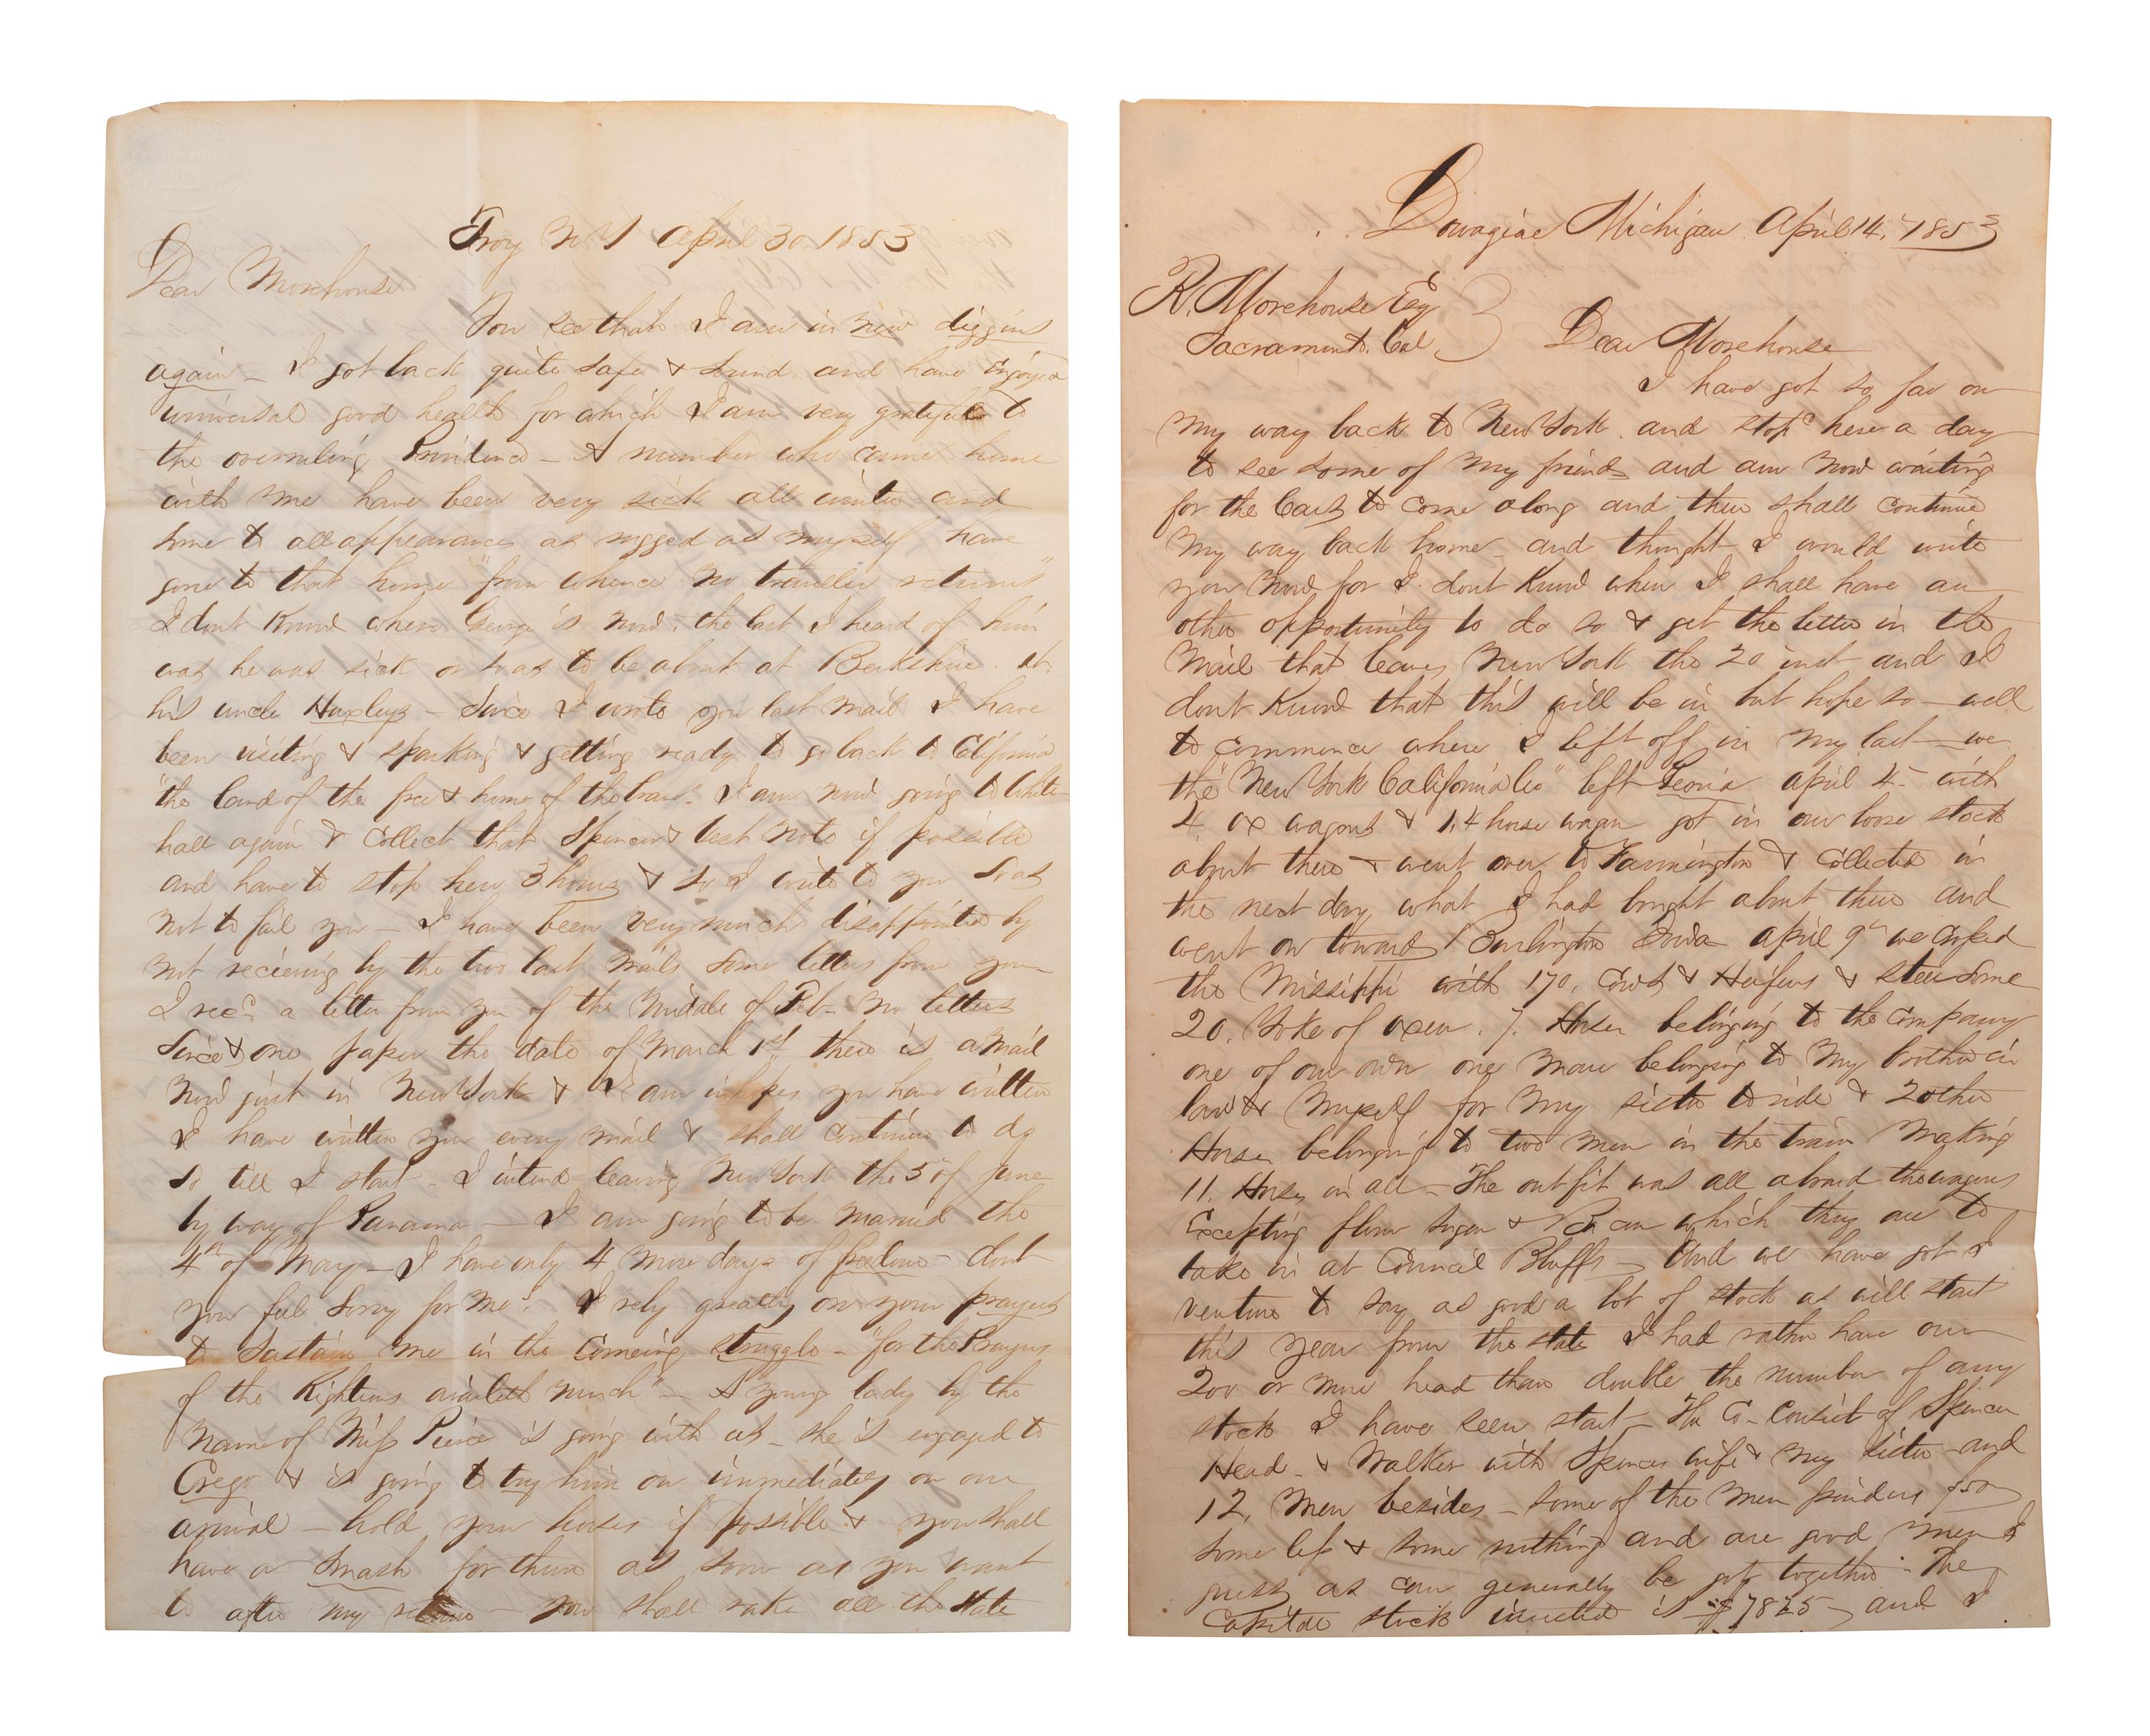 Troy N Y April 30. 1853
Dear Morehouse
You see that I am in new diggins
again – I got back quite safe & sound and have enjoyed
universal good health for which I am very grateful to
the overruling Providence – A number who came home
with me have been very sick all winter and
some to all appearances as rugged as myself have
gone to that home "from whence no traveller returns"
I dont know where George is now. the last I heard of him
was he was sick or so as to be about at Berkshire. at
his uncle Huxleys – Since I wrote you last mail I have
been visiting & sparking & getting ready to go back to California
"the land of the free & home of the brave". I am now going to White-
hall again & collect that Spencer & note if possible
and have to stop here 3 hours & so I write to you so as
not to fail you – I have been very much disappointed by
not recieving by the two last mails some letters from you
I recd a letter from you of the middle of Feb– no letters
since & one paper the date of March 1st there is a mail
now just in New York & I am in hopes you have written
I have written you every mail & shall continue to do
so till I start – I intend leaving New York the 5 of June
by way of Panama – I am going to be married the
4th of May – I have only 4 more days of freedom – dont
you feel sorry for me? I rely greatly on your prayers
to sustain me in the comeing struggle – "for the Prayers
of the Righteous availeth much" – A young lady by the
name of Miss Pierce is going with us – she is engaged to
Crego & is going to try him on immediately on our
arrival – hold your horses if possible & you shall
have a smash for them as soon as you want
to after my return – you shall rake all the State
Dowagiac Michigan April 14, 1853
R. Morehouse Esq
Sacramento. Cal
Dear Morehouse
I have got so far on
my way back to New York. and stopd here a day
to see some of my friends and am now waiting
for the Cars to come along and then shall continue
my way back home – and thought I would write
you now for I dont know when I shall have an
other opportunity to do so & get the letter in the
mail that leaves New York the 20 inst and I
dont know that this will be in but hope so – well
to commence where I left off in my last – we
the "New York California Co" left Peoria April 4 – with
4 ox wagons & 1, 4 horse wagon got in our loose stock
about there & went over to Farmington & collected in
the next day what I had bought about there and
went on towards Burlington Iowa – April 9th we crossed
the Mississippi with 170, Cows & Heifers & steers some
20. Yoke of oxen. 7. Horses belonging to the company
one of our own one mare belonging to my brother in
law & myself for my sister to ride & 2 other
Horses belonging to two men in the train making
11. Horses in all – The outfit was all aboard the wagons
Excepting flour sugar & Bacon which they are to
take in at Council Bluffs – And we have got I
venture to say as good a lot of stock as will start
this year from the state I had rather have our
200 or more head than double the number of any
stock I have seen start – The Co – consist of Spencer
Head – & Walker with Spencers wife & my sister – and
12, men besides – some of the men finding $50
some less & some nothing and are good men I
guess as can generally be got together – The
Capital stock invested is $7825 – and I